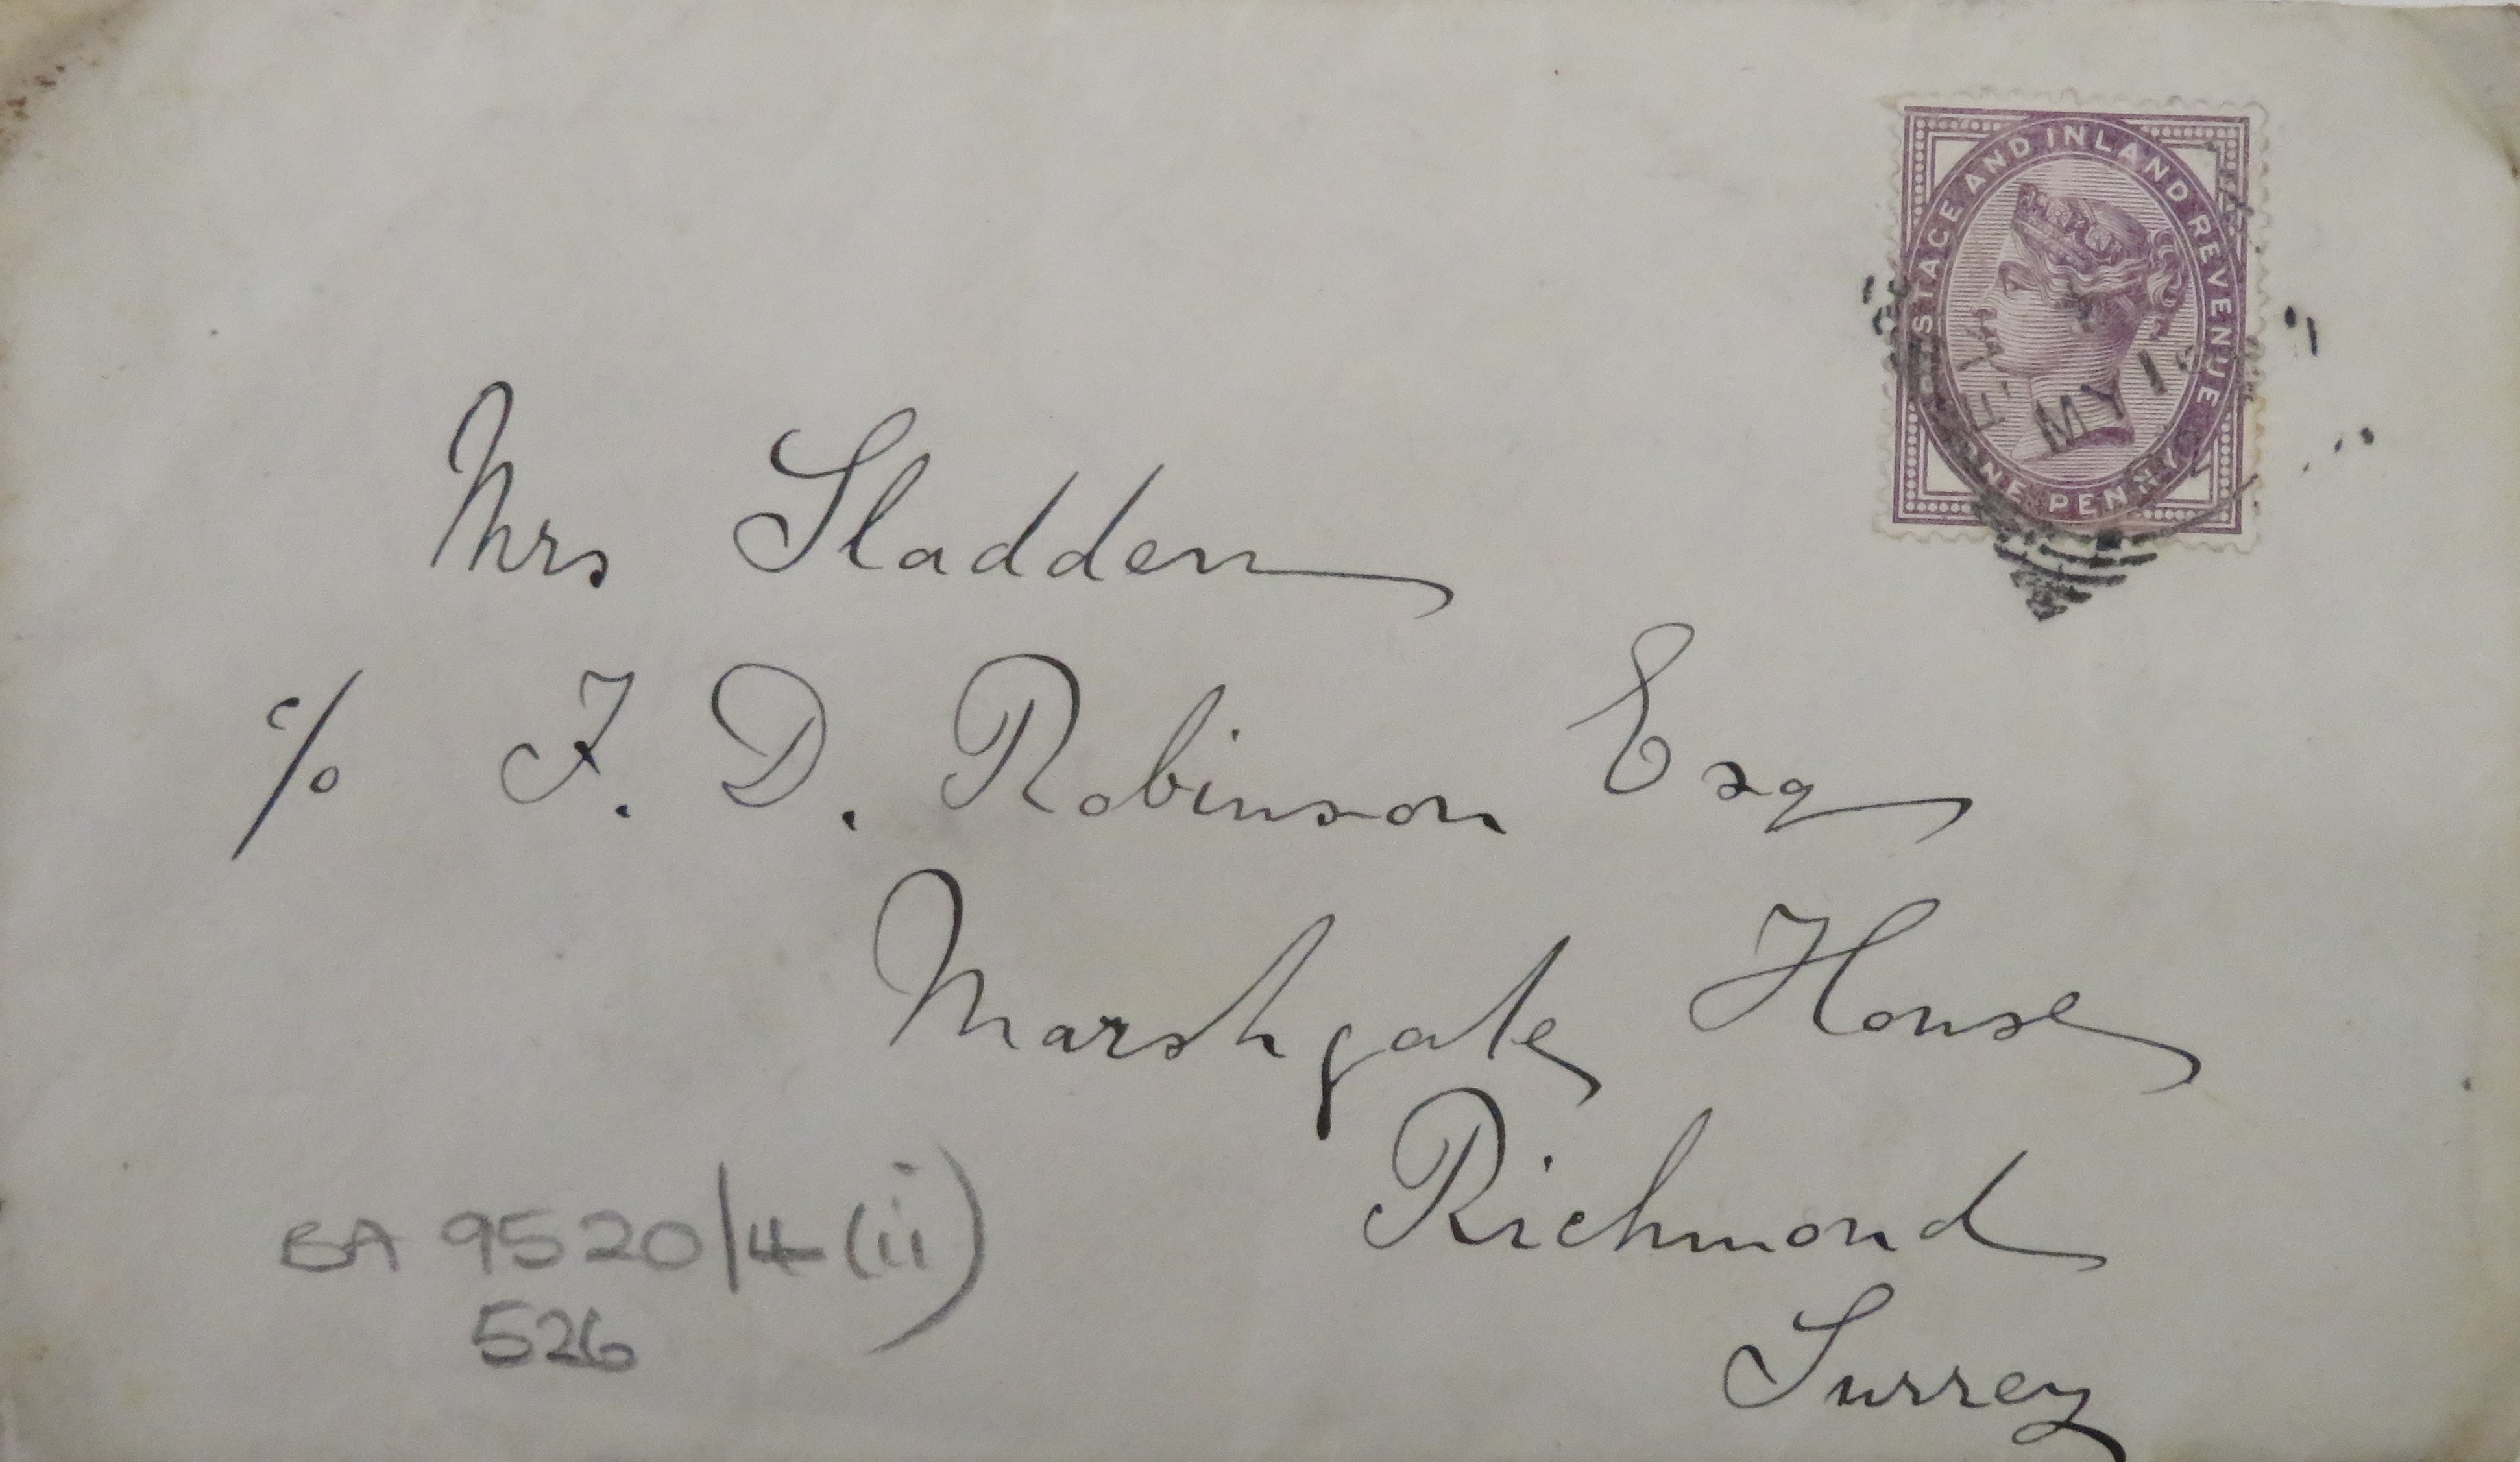 POSTAGE AND INLAND REVENUE
ONE PENNY
MY 1
Mrs Sladden
c/o F. D. Robinson Esq
Marshgate House
Richmond
Surrey
BA 9520/4 (ii)
526